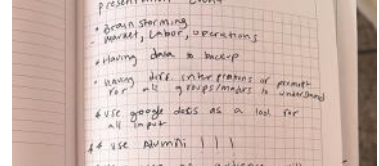 presentation
* Brain storming
- Market, Labor, operations
* Having data to backup
* Having diff interpretations or
for all groups/majors to understand
* use google docs as a tool for
all input
** use Alumni | | |